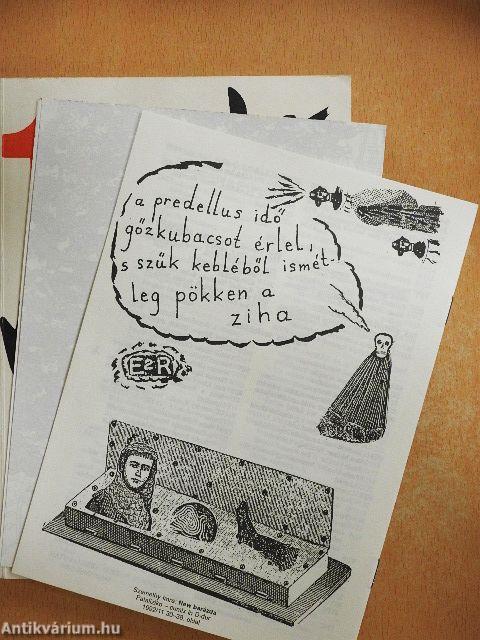 a predellus idő
gőzkubacsot érlel,
s szűk kebléből ismét-
leg pökken a
ziha
E2R
Szemethy Imre: New barázda
1992/11 33-39. oldal
Antikvárium.hu